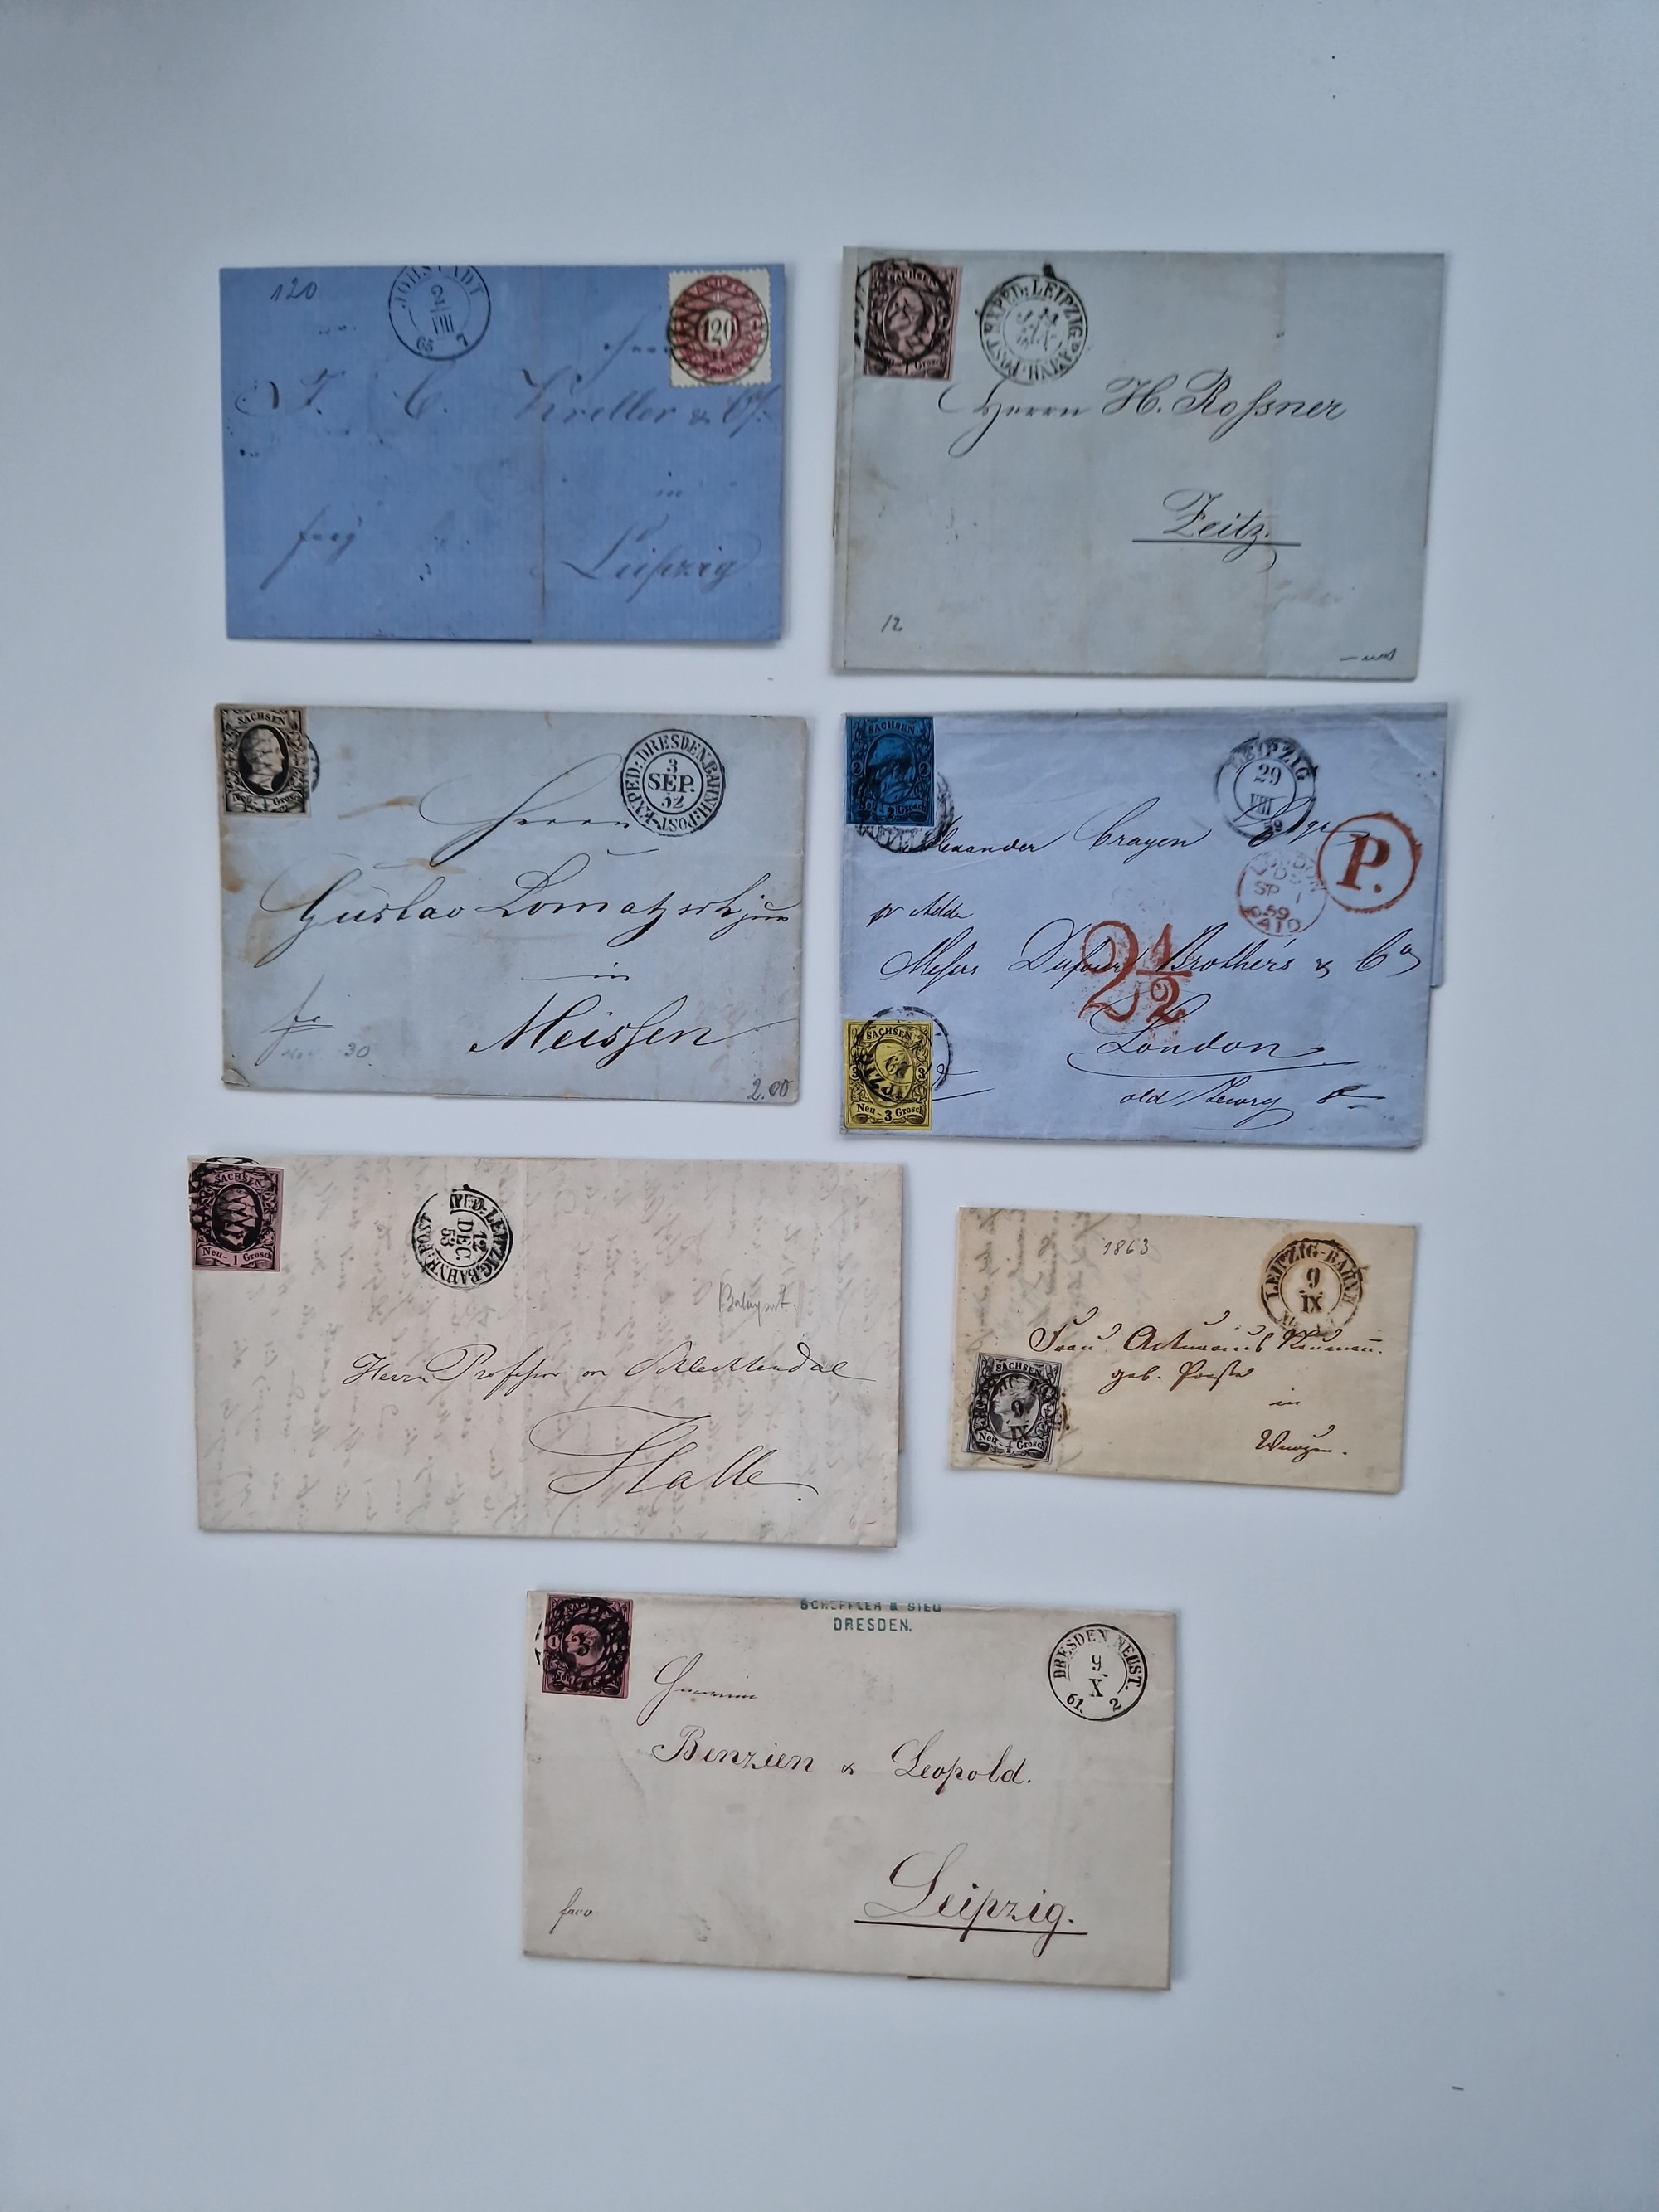 120
JÖHSTADT
2 VIII
7
120
F. C. Kreller & Co.
in
Leipzig
SACHSEN
POST-EXPED: LEIPZIG BAHNH.
Herrn H. Roßner
Zeitz.
12
SACHSEN
Neu-½ Grosch
POST-EXPED: DRESDEN BAHNH:
3
SEP.
52
Herrn
Gustav Lomatzsch jun
in
Meissen
fr
30
2.00
SACHSEN
2 2
Neu-2 Grosch
LEIPZIG
29
VIII
59
Alexander Crayen Esqr
P.
LONDON
SP 1
59
PAID
pr Addr
Messrs Dufour Brothers & Co
2½
London
SACHSEN
3 3
Neu-3 Grosch
old Jewry 8
SACHSEN
Neu-1 Grosch
POST-EXPED: LEIPZIG BAHNH:
12
DEC.
53
Herrn Professor von Schlechtendal
Halle.
1863
LEIPZIG-BAHNH
9
IX
SACHSEN
9
IX
Neu-½ Grosch
Frau Actuarius Neumann.
in
Wurzen.
SCHEFFLER & SIEG
DRESDEN.
1
3
DRESDEN NEUST.
9
X
61. 2
Herren
Benzien & Leopold.
Leipzig.
franco